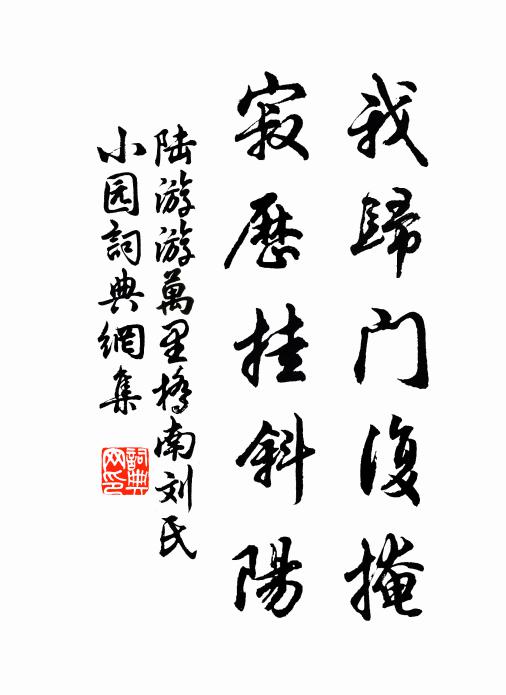 我歸门復掩
寂歷挂斜陽
陆游游萬里橋南刘氏
小园詞典網集
詞典网印